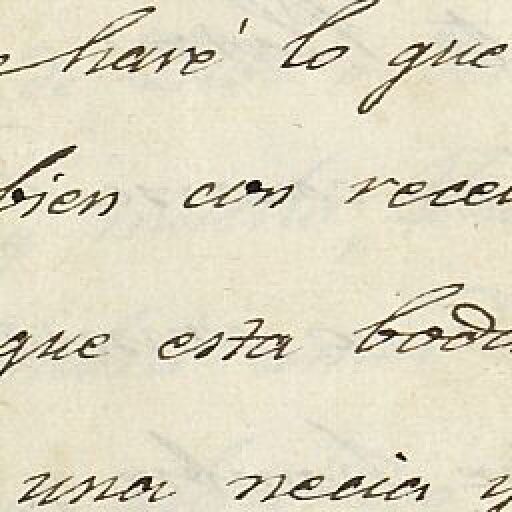 haré lo que
bien con rece
que esta boda
una necia y